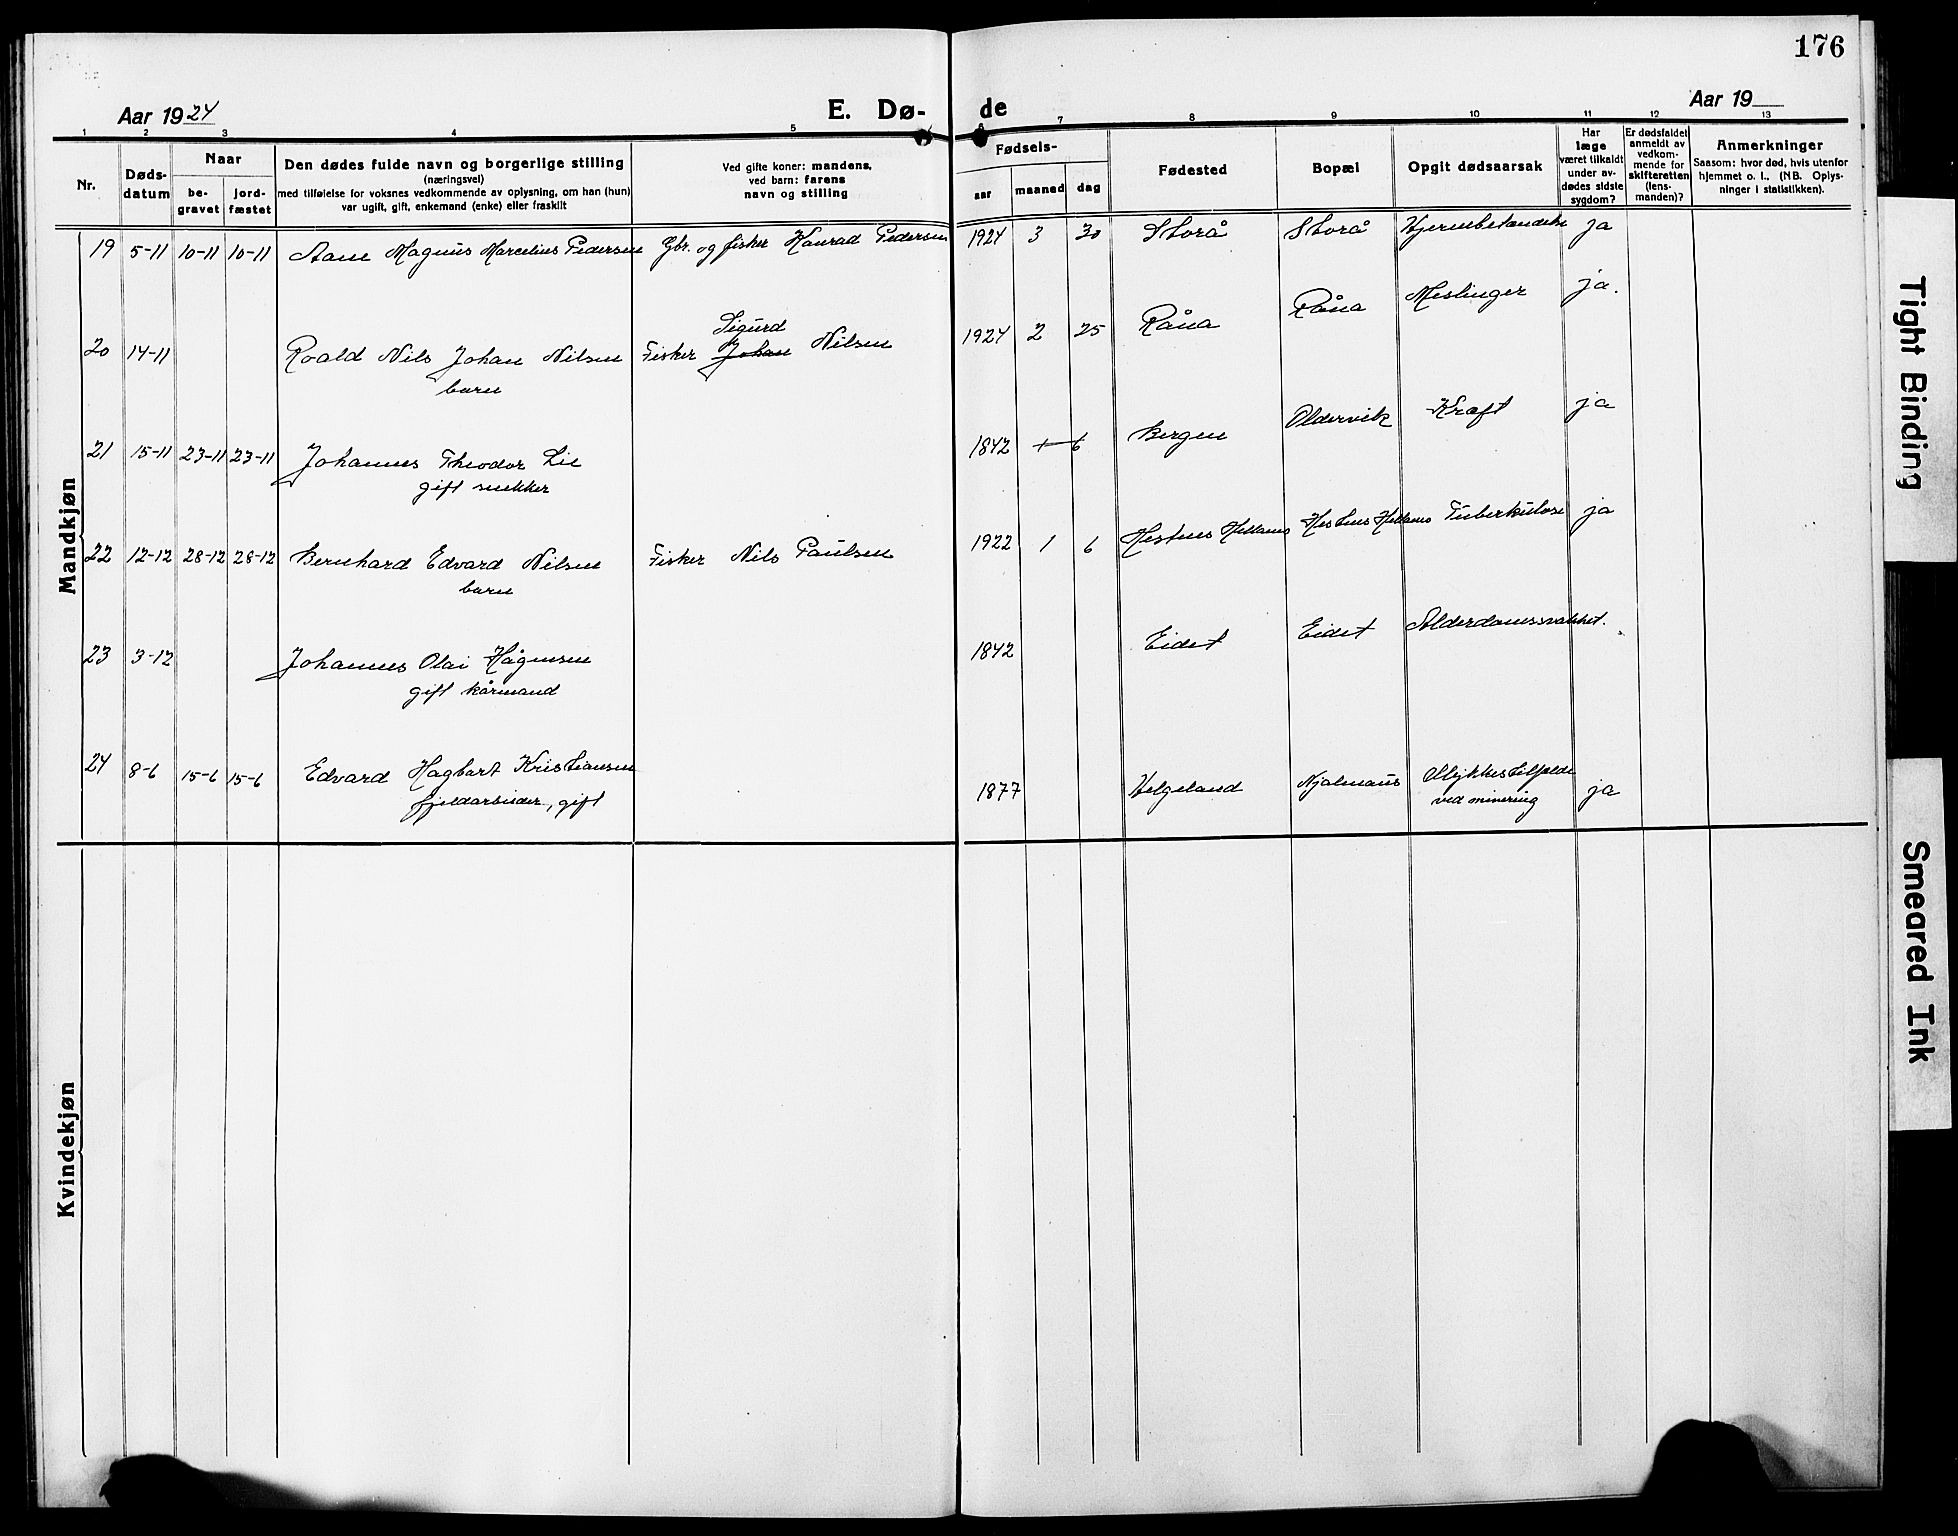 176
Aar 1924
E. Dø- de
Aar 19
1 2 3 4 5 6 7 8 9 10 11 12 13
Nr.
Døds-
datum
Naar
be-
gravet
jord-
fæstet
Den dødes fulde navn og borgerlige stilling
(næringsvei)
med tilføielse for voksnes vedkommende av oplysning, om han (hun)
var ugift, gift, enkemand (enke) eller fraskilt
Ved gifte koner: mandens,
ved barn: farens
navn og stilling
Fødsels-
aar
maaned
dag
Fødested
Bopæl
Opgit dødsaarsak
Har
læge
været tilkaldt
under av-
dødes sidste
sygdom?
Er dødsfaldet
anmeldt av
vedkom-
mende for
skifteretten
(lens-
manden)?
Anmerkninger
Saasom: hvor død, hvis utenfor
hjemmet o. l., (NB. Oplys-
ninger i statistikken).
Mandkjøn
19 5-11 10-11 10-11 Magnus Marcelius Pedersen Gbr. og fisker Konrad Pedersen 1924 3 30 Storå Storå Hjernebetændelse ja
Sigurd
20 14-11 Roald Nils Johan Nilsen Fisker Johan Nilsen 1924 2 25 Råna Råna Meslinger ja.
barn
21 15-11 23-11 23-11 Johannes Theodor Lie 1842 + 6 Bergen Oldervik Kræft ja
gift snekker
22 12-12 28-12 28-12 Bernhard Edvard Nilsen Fisker Nils Paulsen 1922 1 6 Hestnes Hestnes Tuberkulose ja
barn
23 3-12 Johannes Olai Hågensen 1842 Eidet Eidet Alderdomssvakhet.
gift kårmand
24 8-6 15-6 15-6 Edvard Hagbart Kristiansen 1877 Helgeland Ulykkestilfelde ja
fjeldarbeider, gift ved minering
Kvindekjøn
Tight Binding
Smeared Ink